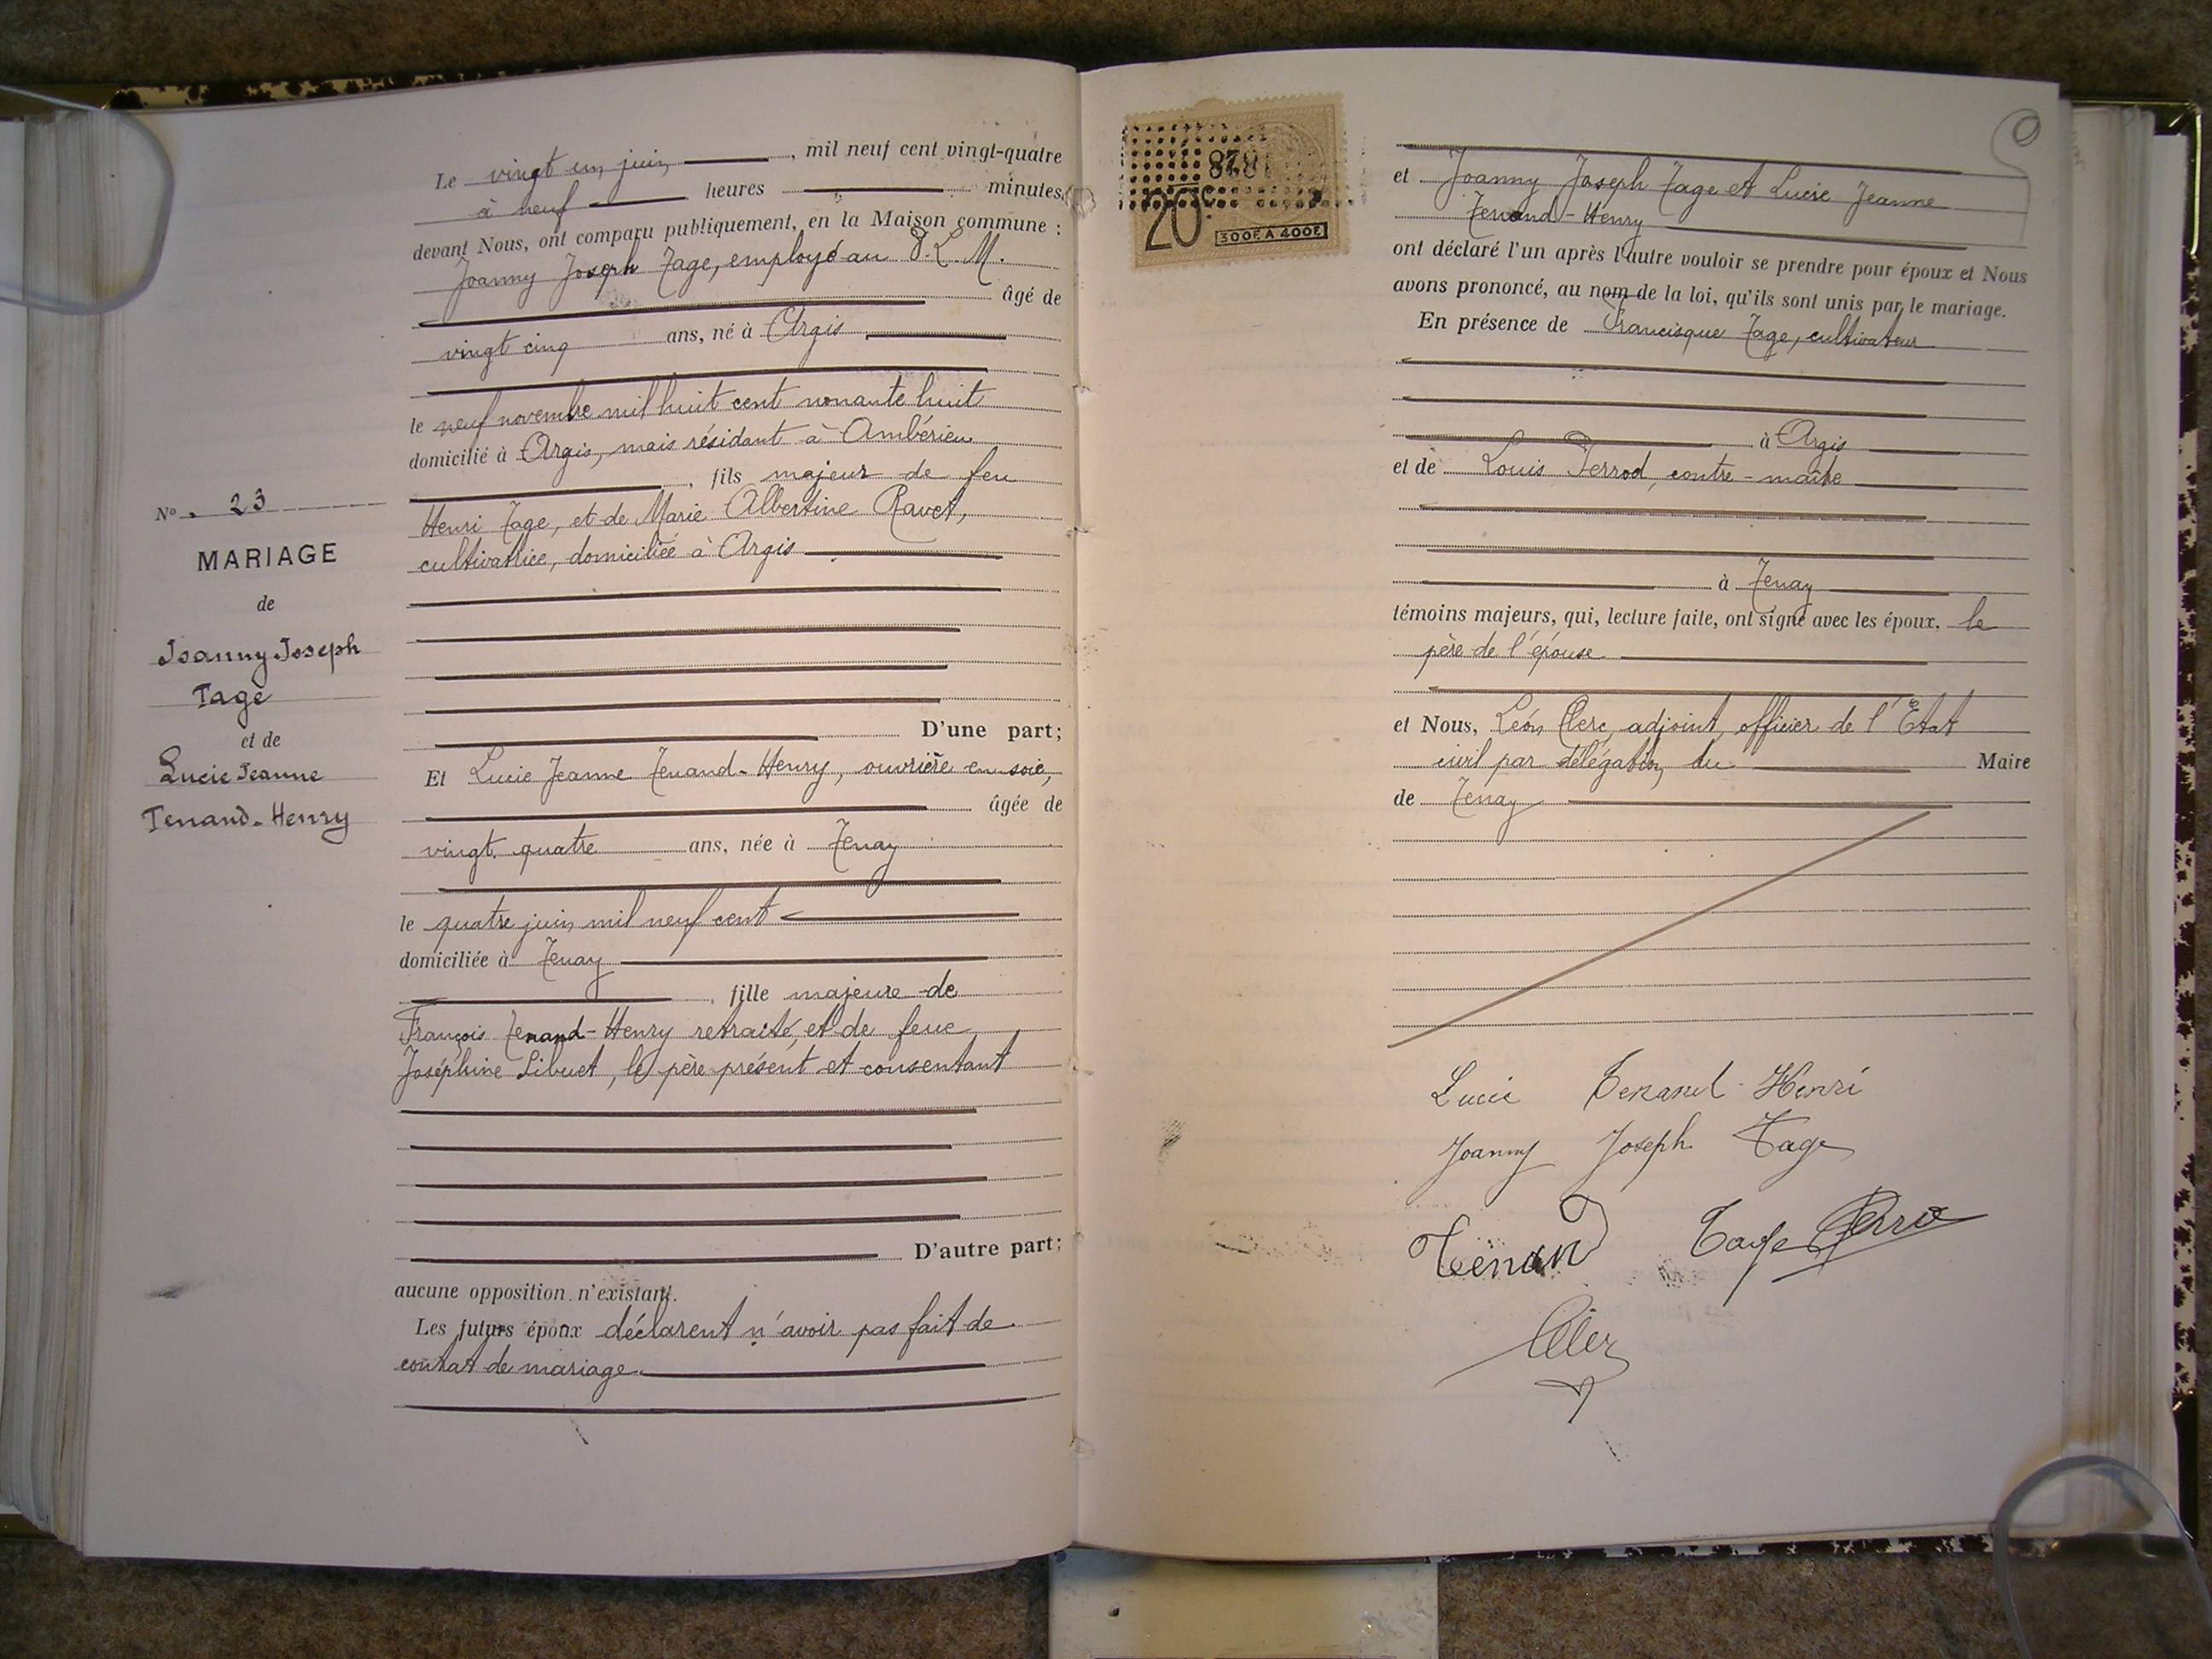 Le vingt un juin, mil neuf cent vingt-quatre
à neuf heures minutes,
devant Nous, ont comparu publiquement, en la Maison commune :
Joanny Joseph Tage, employé au P. L. M.
âgé de
vingt cinq ans, né à Argis
le neuf novembre mil huit cent nonante huit
domicilié à Argis, mais résidant à Ambérieu
, fils majeur de feu
Henri Tage, et de Marie Albertine Ravet,
cultivatrice, domiciliée à Argis
D'une part;
Et Lucie Jeanne Tenand-Henry, ouvrière en soie,
âgée de
vingt quatre ans, née à Tenay
le quatre juin mil neuf cent
domiciliée à Tenay
, fille majeure de
François Tenand-Henry retraité, et de feue
Joséphine Libuet, le père présent et consentant
D'autre part;
aucune opposition n'existant.
Les futurs époux déclarent n'avoir pas fait de
contrat de mariage.
No. 23
MARIAGE
de
Joanny Joseph
Tage
et de
Lucie Jeanne
Tenand-Henry
20c
300F A 400F
et Joanny Joseph Tage et Lucie Jeanne
Tenand-Henry
ont déclaré l'un après l'autre vouloir se prendre pour époux et Nous
avons prononcé, au nom de la loi, qu'ils sont unis par le mariage.
En présence de Francisque Tage, cultivateur
à Argis
et de Louis Perrod, contre-maître
à Tenay
témoins majeurs, qui, lecture faite, ont signé avec les époux, le
père de l'épouse
et Nous, Léon Clerc, adjoint, officier de l'Etat
civil par délégation du Maire
de Tenay
Lucie Tenand-Henri
Joanny Joseph Tage
Tenan Tage